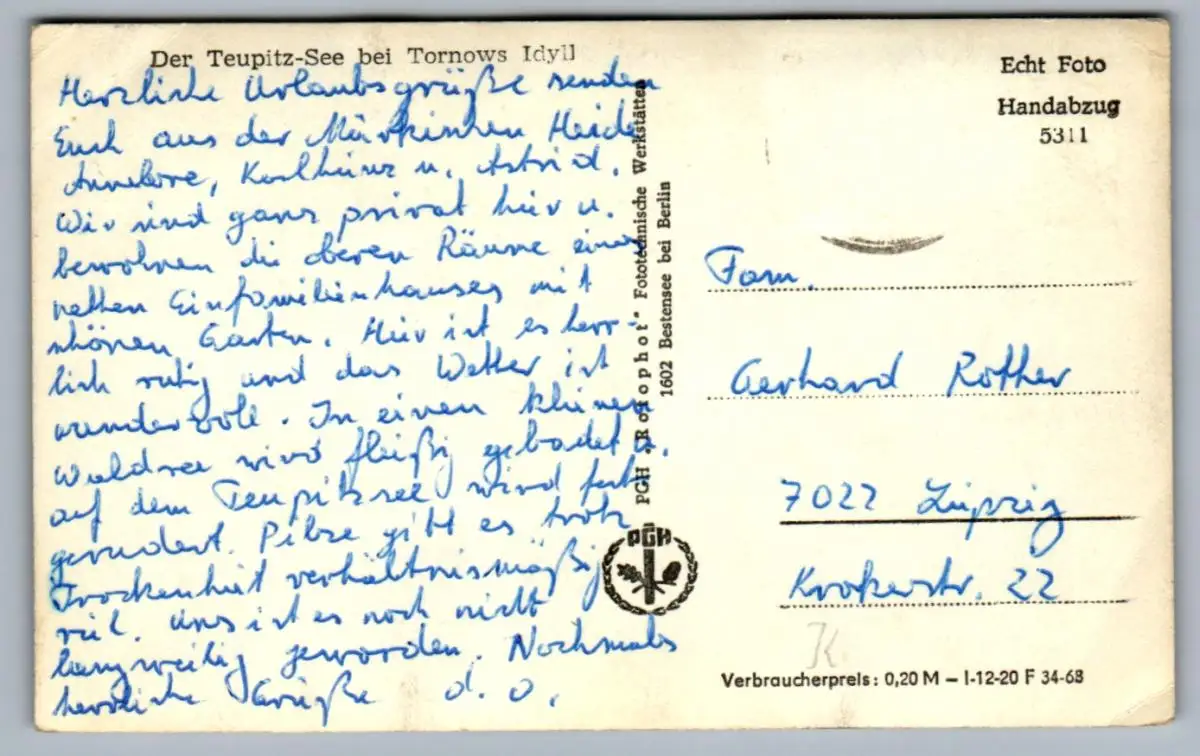 Der Teupitz-See bei Tornows Idyll
Herzliche Urlaubsgrüße senden
Euch aus der Märkischen Heide
Annelore, Karlheinz u. Astrid.
Wir sind ganz privat hier u.
bewohnen die oberen Räume eines
netten Einfamilienhauses mit
schönen Garten. Hier ist es herr-
lich ruhig und das Wetter ist
wundervoll. In einen kleinen
Waldsee wird fleißig gebadet u.
auf dem Teupitzsee wird fest
gerudert. Pilze gibt es trotz
Trockenheit verhältnismäßig
viel. Uns ist es noch nicht
langweilig geworden. Nochmals
herzliche Grüße d. O.
PGH „Rotophot" Fototechnische Werkstätten
1602 Bestensee bei Berlin
PGH
Echt Foto
Handabzug
5311
Fam.
Gerhard Rother
7022 Leipzig
Krokerstr. 22
K
Verbraucherpreis: 0,20 M – I-12-20 F 34-68